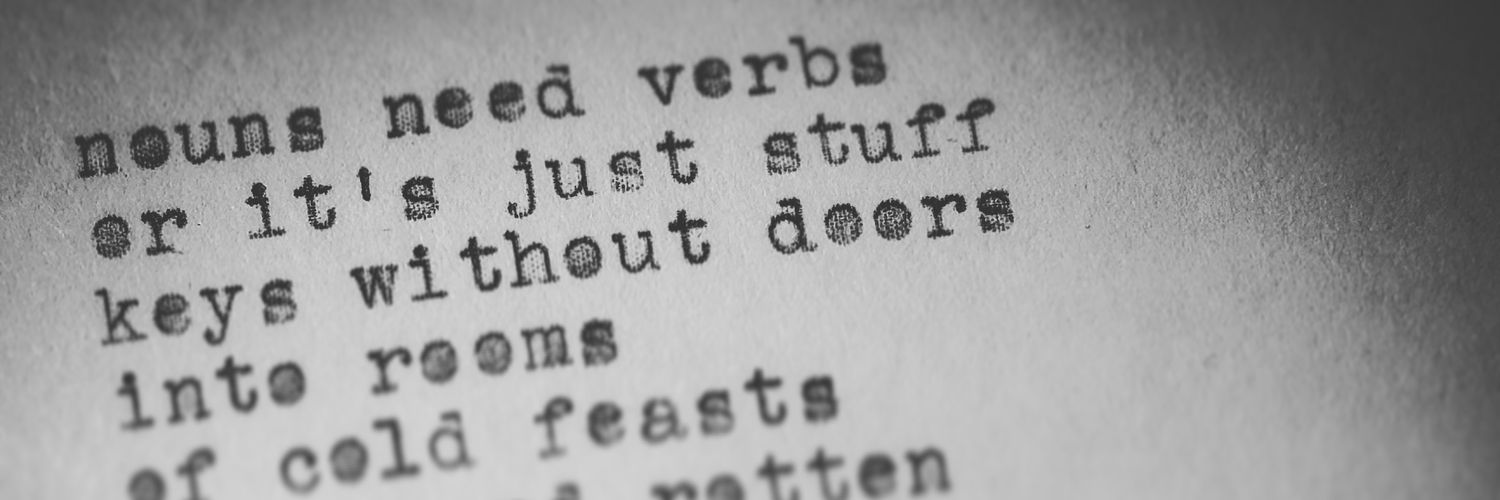 nouns need verbs
or it's just stuff
keys without doors
into rooms
of cold feasts
rotten